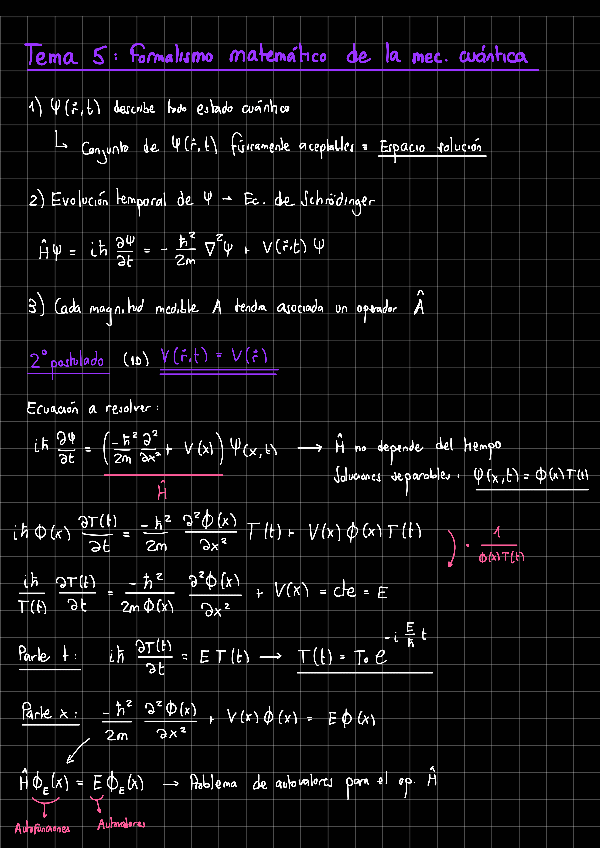 Tema 5: Formalismo matemático de la mec. cuántica
1) Ψ(r⃗,t) describe todo estado cuántico
↳ Conjunto de Ψ(r⃗,t) físicamente aceptables = Espacio solución
2) Evolución temporal de Ψ → Ec. de Schrödinger
ĤΨ = iħ ∂Ψ/∂t = - ħ²/2m ∇²Ψ + V(r⃗,t) Ψ
3) Cada magnitud medible A tendra asociada un operador Â
2º postulado (1D) V(r⃗,t) = V(r⃗)
Ecuación a resolver:
iħ ∂Ψ/∂t = (-ħ²/2m ∂²/∂x² + V(x)) Ψ(x,t) → Ĥ no depende del tiempo
Soluciones separables: Ψ(x,t) = Φ(x)T(t)
Ĥ
iħ Φ(x) ∂T(t)/∂t = -ħ²/2m ∂²Φ(x)/∂x² T(t) + V(x) Φ(x) T(t) · 1/Φ(x)T(t)
iħ/T(t) ∂T(t)/∂t = -ħ²/2mΦ(x) ∂²Φ(x)/∂x² + V(x) = cte = E
Parte t: iħ ∂T(t)/∂t = E T(t) → T(t) = T₀ e^(-i E/ħ t)
Parte x: -ħ²/2m ∂²Φ(x)/∂x² + V(x) Φ(x) = E Φ(x)
Ĥ Φ_E(x) = E Φ_E(x) → Problema de autovalores para el op. Ĥ
Autofunciones Autovalores